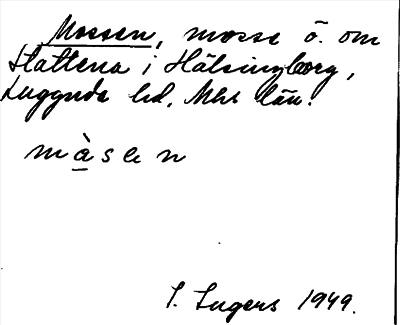 Mossen, mosse ö. om
Slattena i Hälsingborg,
Luggude hd. Mhs län.
màsen
S. Ingers 1949.